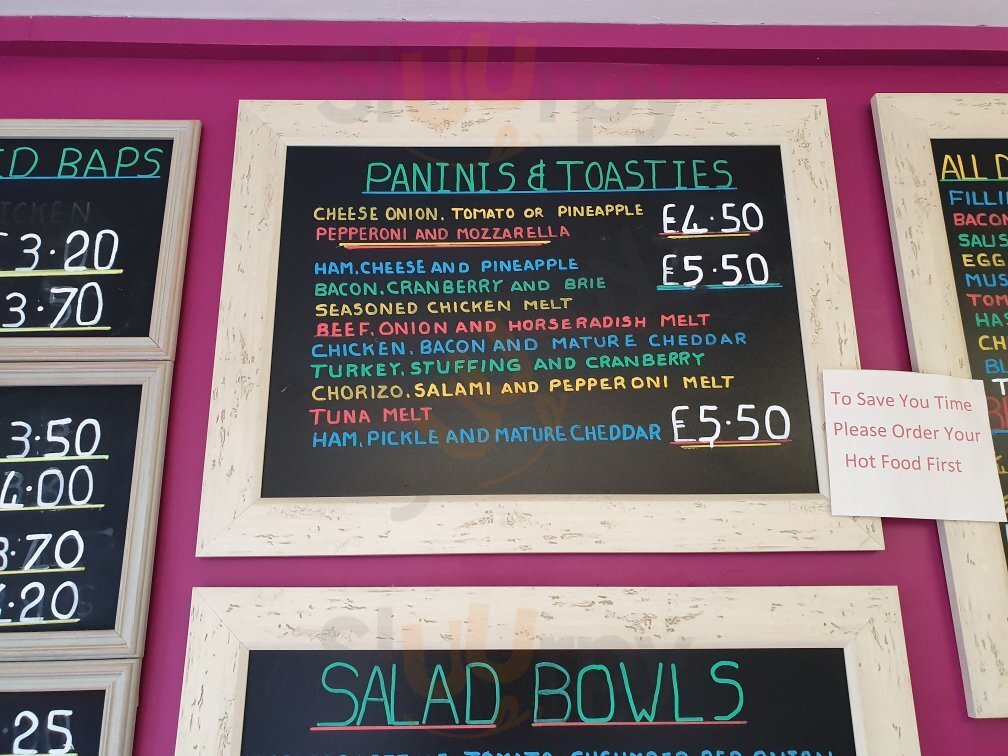 ED BAPS
ICKEN
£3.20
3.70
3.50
4.00
3.70
.20
.25
PANINIS & TOASTIES
CHEESE ONION, TOMATO OR PINEAPPLE £4.50
PEPPERONI AND MOZZARELLA
HAM, CHEESE AND PINEAPPLE £5.50
BACON, CRANBERRY AND BRIE
SEASONED CHICKEN MELT
BEEF, ONION AND HORSERADISH MELT
CHICKEN, BACON AND MATURE CHEDDAR
TURKEY, STUFFING AND CRANBERRY
CHORIZO, SALAMI AND PEPPERONI MELT
TUNA MELT
HAM, PICKLE AND MATURE CHEDDAR £5.50
SALAD BOWLS
TOMATO, CUCUMBER RED ONION
To Save You Time
Please Order Your
Hot Food First
ALL D
FILLI
BACON
SAUS
EGG
MUS
TOM
HAS
CH
BL
T
sluurpy
sluurpy